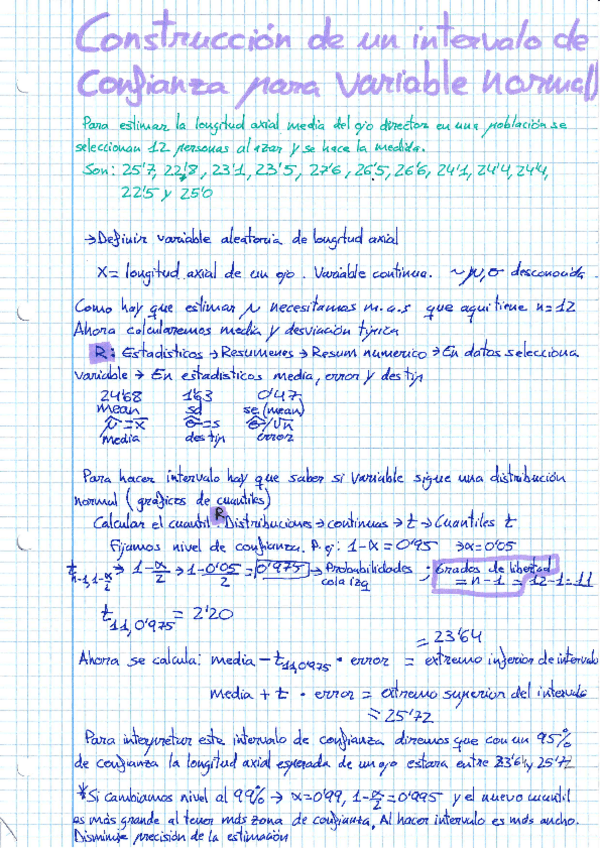 Construcción de un intervalo de
Confianza para variable normal
Para estimar la longitud axial media del ojo director en una población se
seleccionan 12 personas al azar y se hace la medida.
Son: 25'7, 22'8, 23'1, 23'5, 27'6, 26'5, 26'6, 24'1, 24'4, 24'4,
22'5 y 25'0
→ Definir variable aleatoria de longitud axial
X = longitud axial de un ojo. Variable continua. ~ μ, σ desconocida.
Como hay que estimar μ necesitamos m.a.s que aqui tiene n=12
Ahora calcularemos media y desviación típica
R: Estadísticos → Resumenes → Resum numerico → En datos selecciona
variable → En estadisticos media, error y des tip
24'68 1'63 0'47
mean sd se (mean)
μ̂ = x̄ σ̂ = s σ̂/√n
media des tip error
Para hacer intervalo hay que saber si variable sigue una distribución
normal (gráficos de cuantiles)
Calcular el cuantil R: Distribuciones → continuas → t → Cuantiles t
Fijamos nivel de confianza. P. ej: 1-α = 0'95 → α = 0'05
t n-1, 1-α/2 → 1-α/2 → 1-0'05/2 = 0'975 → Probabilidades cola izq ; Grados de libertad
= n-1 = 12-1 = 11
t 11, 0'975 = 2'20
= 23'64
Ahora se calcula: media - t 11, 0'975 · error = extremo inferior de intervalo
media + t · error = extremo superior del intervalo
= 25'72
Para interpretar este intervalo de confianza diremos que con un 95%
de confianza la longitud axial esperada de un ojo estara entre 23'64 y 25'72
* Si cambiamos nivel al 99% → α = 0'99, 1-α/2 = 0'995 y el nuevo cuantil
es más grande al tener más zona de confianza, Al hacer intervalo es más ancho.
Disminuye precisión de la estimación